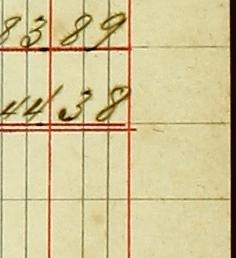 83 89
44 38